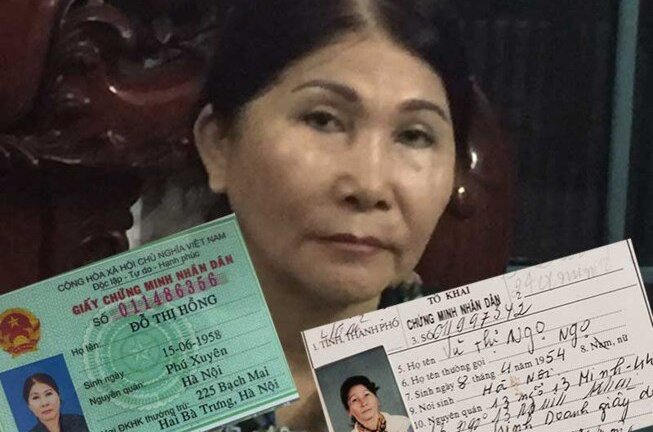 CỘNG HÒA XÃ HỘI CHỦ NGHĨA VIỆT NAM
Độc lập - Tự do - Hạnh phúc
GIẤY CHỨNG MINH NHÂN DÂN
SỐ 011486356
Họ tên ĐỖ THỊ HỒNG
Sinh ngày 15-06-1958
Nguyên quán Phú Xuyên
Hà Nội
Nơi ĐKHK thường trú 225 Bạch Mai
Hai Bà Trưng, Hà Nội
TỜ KHAI
CHỨNG MINH NHÂN DÂN
1. TỈNH, THÀNH PHỐ
3. SỐ 011997342
5. Họ tên Vũ Thị Ngọ
6. Họ tên thường gọi Ngọ
7. Sinh ngày 8 tháng 4 năm 1954 8. Nam, nữ
9. Nơi sinh Hà Nội
10. Nguyên quán
Doanh giấy